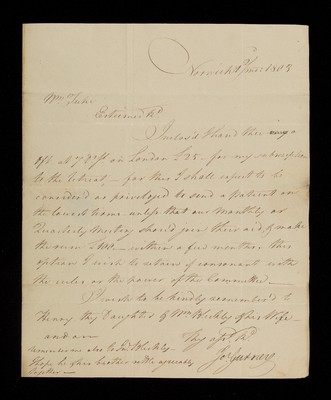 Norwich 1803
Wm Tuke
Esteemed Fd
Inclos'd I hand thee my
at 7 in London £25 - for my subscription
to the Retreat - for this I shall expect to be
considered as priveledged to send a Patient on
the lowest terms unless that our Monthly or
Quarterly Meeting should join their aid & make
the sum £100 - within a few months this
option I wish to retain if consonant with
the rules or the power of the Committee -
I wish to be kindly remember'd to
Henry thy Daughters & Wm &his Wife -
and am
Thy Fd
remember me also to
I hope he & his brother settle agreeably
together -
Jos Gurney